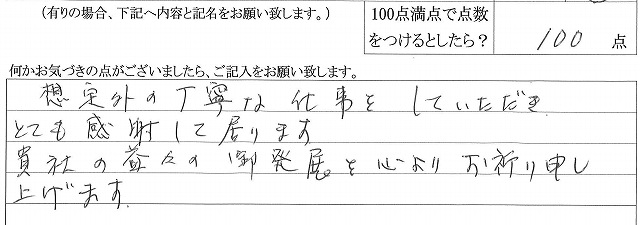 (有りの場合、下記へ内容と記名をお願い致します。)
100点満点で点数
をつけるとしたら?
100 点
何かお気づきの点がございましたら、ご記入をお願い致します。
想定外の丁寧な仕事をしていただき
とても感謝して居ります
貴社の益々の御発展を心よりお祈り申し
上げます。